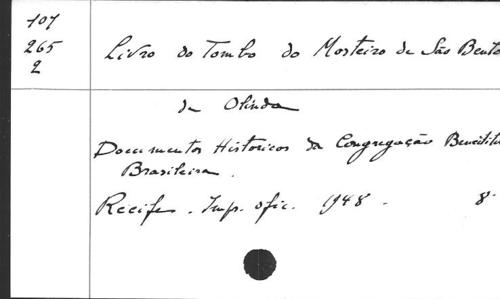 107
265
2
Livro do Tombo do Mosteiro de São Bento
de Olinda
Documentos Historicos da Congregação
Brasileira.
Recife. Imp. ofic. 1948. 8.